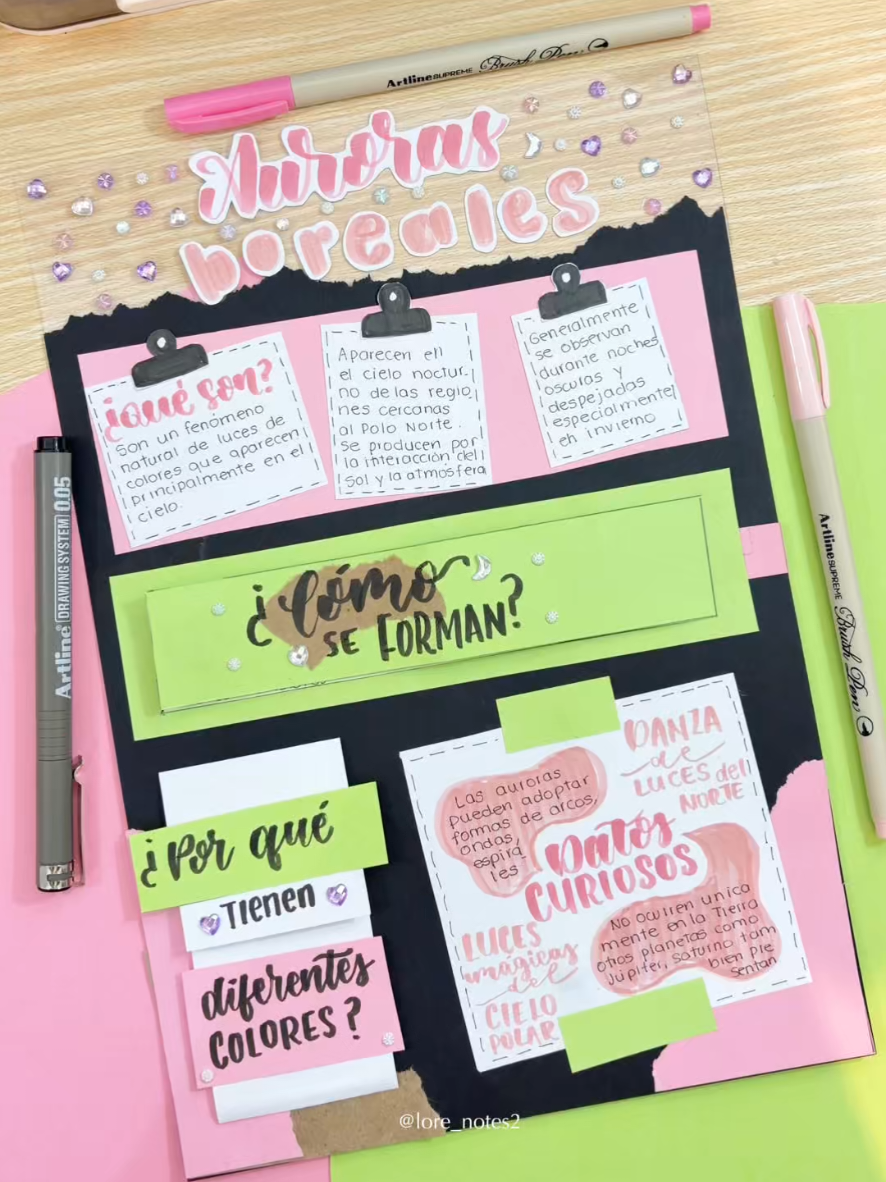 Artline SUPREME Brush Pen
Auroras
boreales
¿Qué son?
Son un fenómeno
natural de luces de
colores que aparecen
principalmente en el
cielo.
Aparecen en
el cielo noctur.
no de las regio,
nes cercanas
al Polo Norte.
se producen por
la interacción del
Sol y la atmósfera
Generalmente
se observan
durante noches
oscuras y
despejadas
especialmente
en invierno
Artline DRAWING SYSTEM 0.05
Artline SUPREME Brush Pen
¿Cómo
SE FORMAN?
¿Por qué
TIENEN
diferentes
COLORES?
DANZA
de
LUCES del
NORTE
Las auroras
pueden adoptar
formas de arcos,
ondas,
espira
les
Datos
CURIOSOS
LUCES
mágicas
del
CIELO
POLAR
No ocurren unica
mente en la Tierra
otros planetas como
jupiter, saturno tam
bien pre
sentan
@lore_notes2